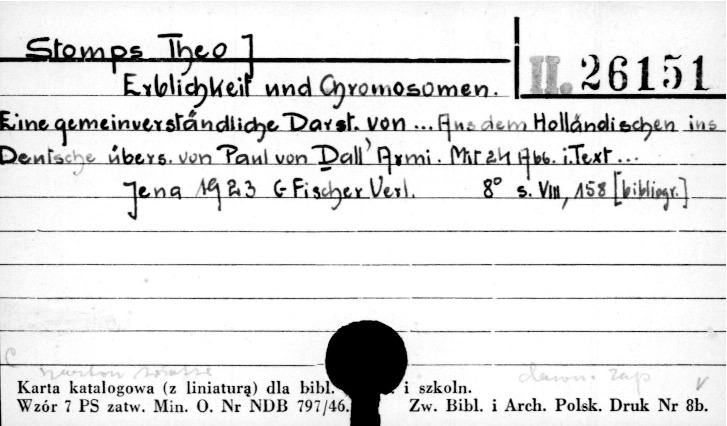 Stomps Theo]
II. 26151
Erblichkeit und Chromosomen.
Eine gemeinverständliche Darst. von ... Aus dem Holländischen ins
Deutsche übers. von Paul von Dall'Armi. Mit 24 Abb. i. Text ...
Jena 1923 G Fischer Verl. 8° s. VIII, 158 [bibliogr.]
Karta katalogowa (z liniaturą) dla bibl. i szkoln.
Wzór 7 PS zatw. Min. O. Nr NDB 797/46. Zw. Bibl. i Arch. Polsk. Druk Nr 8b.